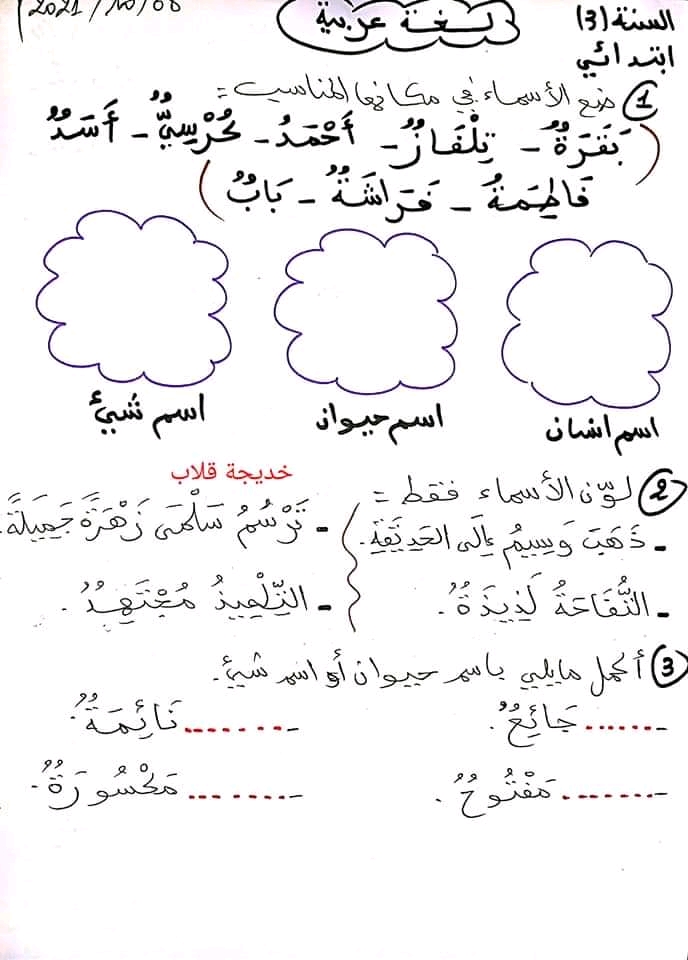 السنة (3)
ابتدائي
لغة عربية
2021/10/06
1 ضع الأسماء في مكانها المناسب =
(بَقَرَةٌ - تِلْفَازٌ - أَحْمَدُ - كُرْسِيٌّ - أَسَدٌ
فَاطِمَةُ - فَرَاشَةٌ - بَابٌ)
اسم انسان
اسم حيوان
اسم شيئ
خديجة قلاب
2 لوّن الأسماء فقط =
- ذَهَبَ وَسِيمُ إِلَى الحَدِيقَةِ.
- تَرْسُمُ سَلْمَى زَهْرَةً جَمِيلَةً.
- التُّفَاحَةُ لَذِيذَةٌ.
- التِّلْمِيذُ مُجْتَهِدٌ.
3 أكمل مايلي باسم حيوان أو اسم شيئ.
- ....... جَائِعٌ.
- ....... نَائِمَةٌ.
- ....... مَفْتُوحٌ.
- ....... مَكْسُورَةٌ.